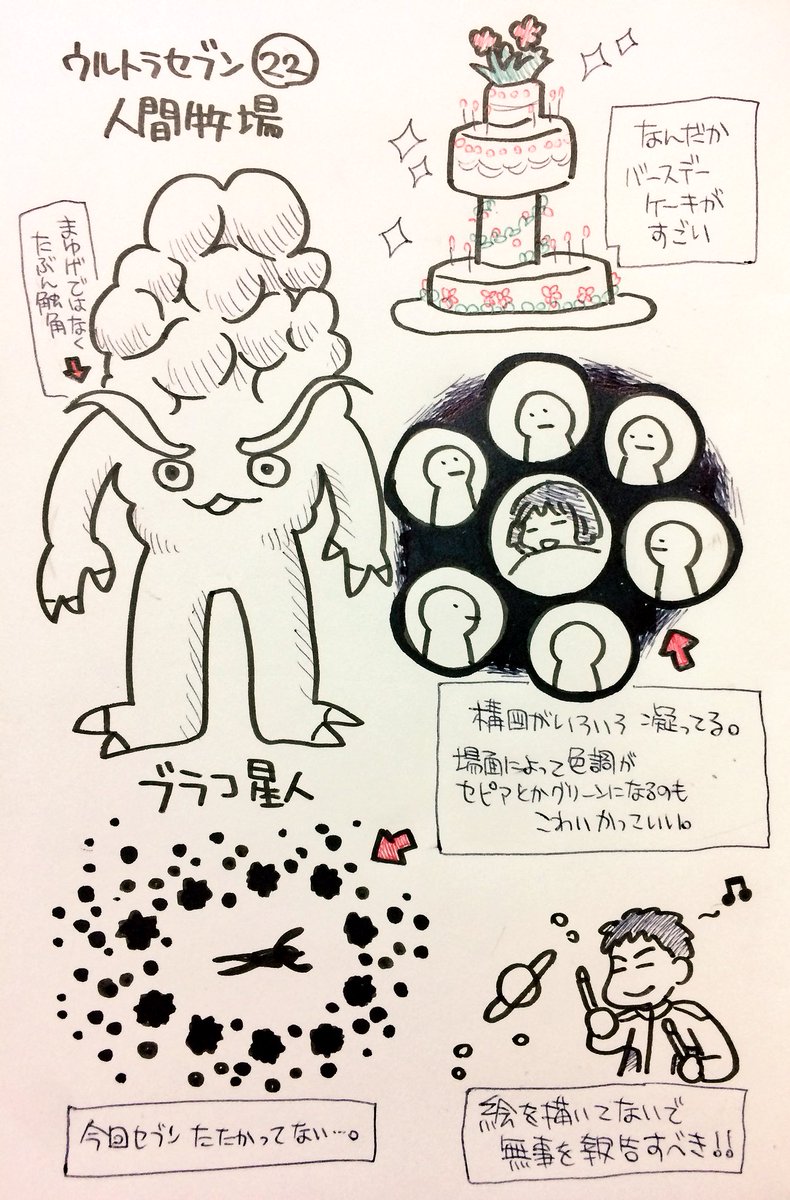 ウルトラセブン㉒
人間牧場
なんだか
バースデー
ケーキが
すごい
まゆげではなく
たぶん触角
ブラコ星人
構図がいろいろ凝ってる。
場面によって色調が
セピアとかグリーンになるのも
こわいかっていい。
今回セブンたたかってない…。
絵を描いてないで
無事を報告すべき!!